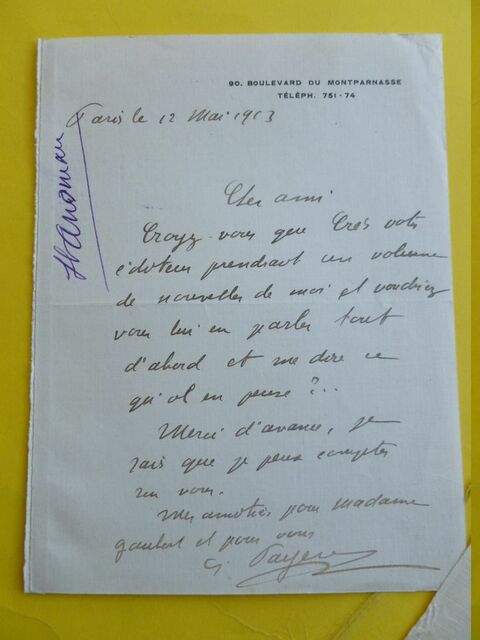 90. BOULEVARD DU MONTPARNASSE
TÉLÉPH. 751-74
Paris le 12 Mai 1913
Cher ami
Croyez-vous que Crès votre
éditeur prendrait un volume
de nouvelles de moi et voudriez
vous lui en parler tout
d'abord et me dire ce
qu'il en pense ?..
Merci d'avance, je
sais que je peux compter
sur vous.
Mes amitiés pour madame
Gaubert et pour vous
G.